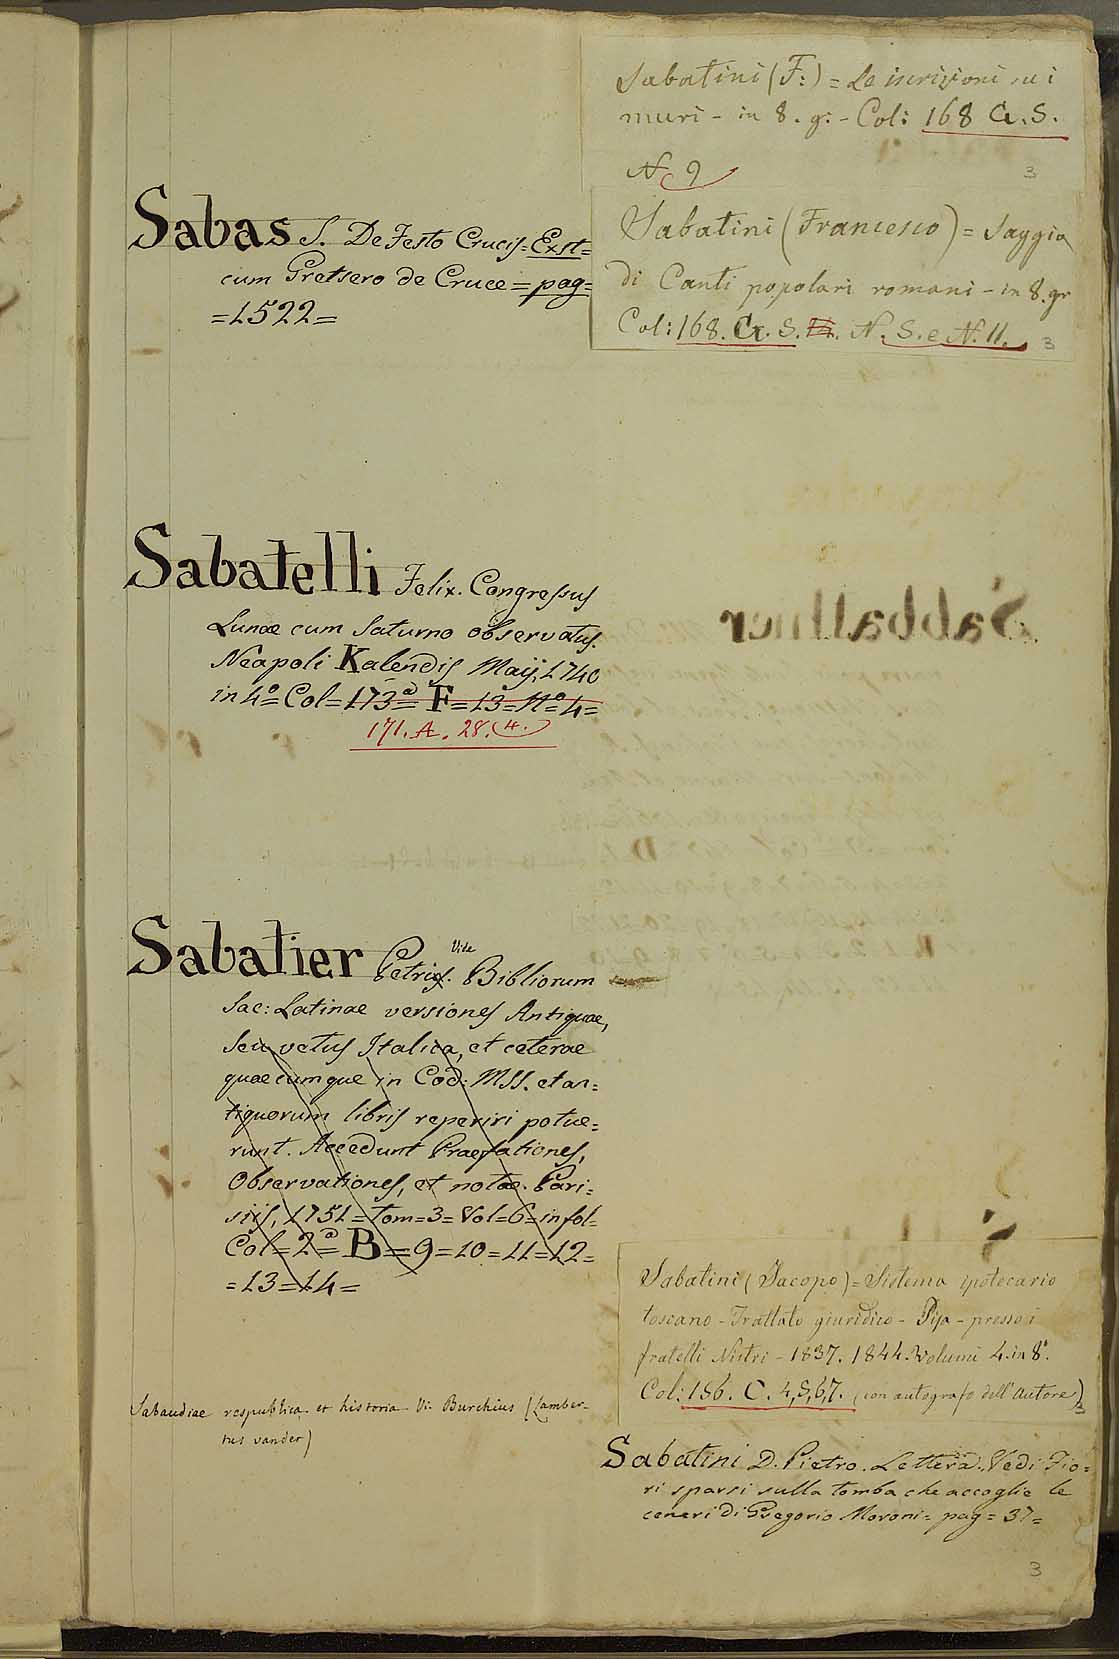 Sabas S. De Festo Crucis= Exst=
cum Gretsero de Cruce = pag=
=1522=
Sabatelli Felix. Congressus
Lunae cum Saturno observatus.
Neapoli Kalendis Maij, 1740
in 4º= Col= 173ª= F=13=Nº=4=
171. A. 28. (4.)
Vide
Sabatier Petrus. Bibliorum
Sac: Latinae versiones Antiquae,
seu vetus Italica, et ceterae
quaecumque in Cod: MSS. et an=
tiquorum libris reperiri potue=
runt. Accedunt Praefationes,
Observationes, et notae. Pari=
siis, 1751= tom=3= Vol=6= in fol=
Col= 2ª= B=9=10=11=12=
=13=14=
Sabaudiae respublica et historia Vi: Burchius (Lamber-
tus vander)
Sabatini (F:) = Le iscrizioni sui
muri - in 8. gr. - Col: 168 G. S.
N 9
3
Sabatini (Francesco) = Saggio
di Canti popolari romani - in 8. gr
Col: 168. G. S. N. S. e N. 11.
3
Sabatini (Jacopo) = Sistema ipotecario
toscano - Trattato giuridico - Pisa - presso i
fratelli Nistri - 1837. 1844. Volumi 4. in 8º.
Col: 156. C. 4,5,6,7. (con autografo dell'Autore)
3
Sabatini D. Pietro. Lettera. Vedi Fio=
ri sparsi sulla tomba che accoglie le
ceneri di Gregorio Moroni= pag= 37=
3